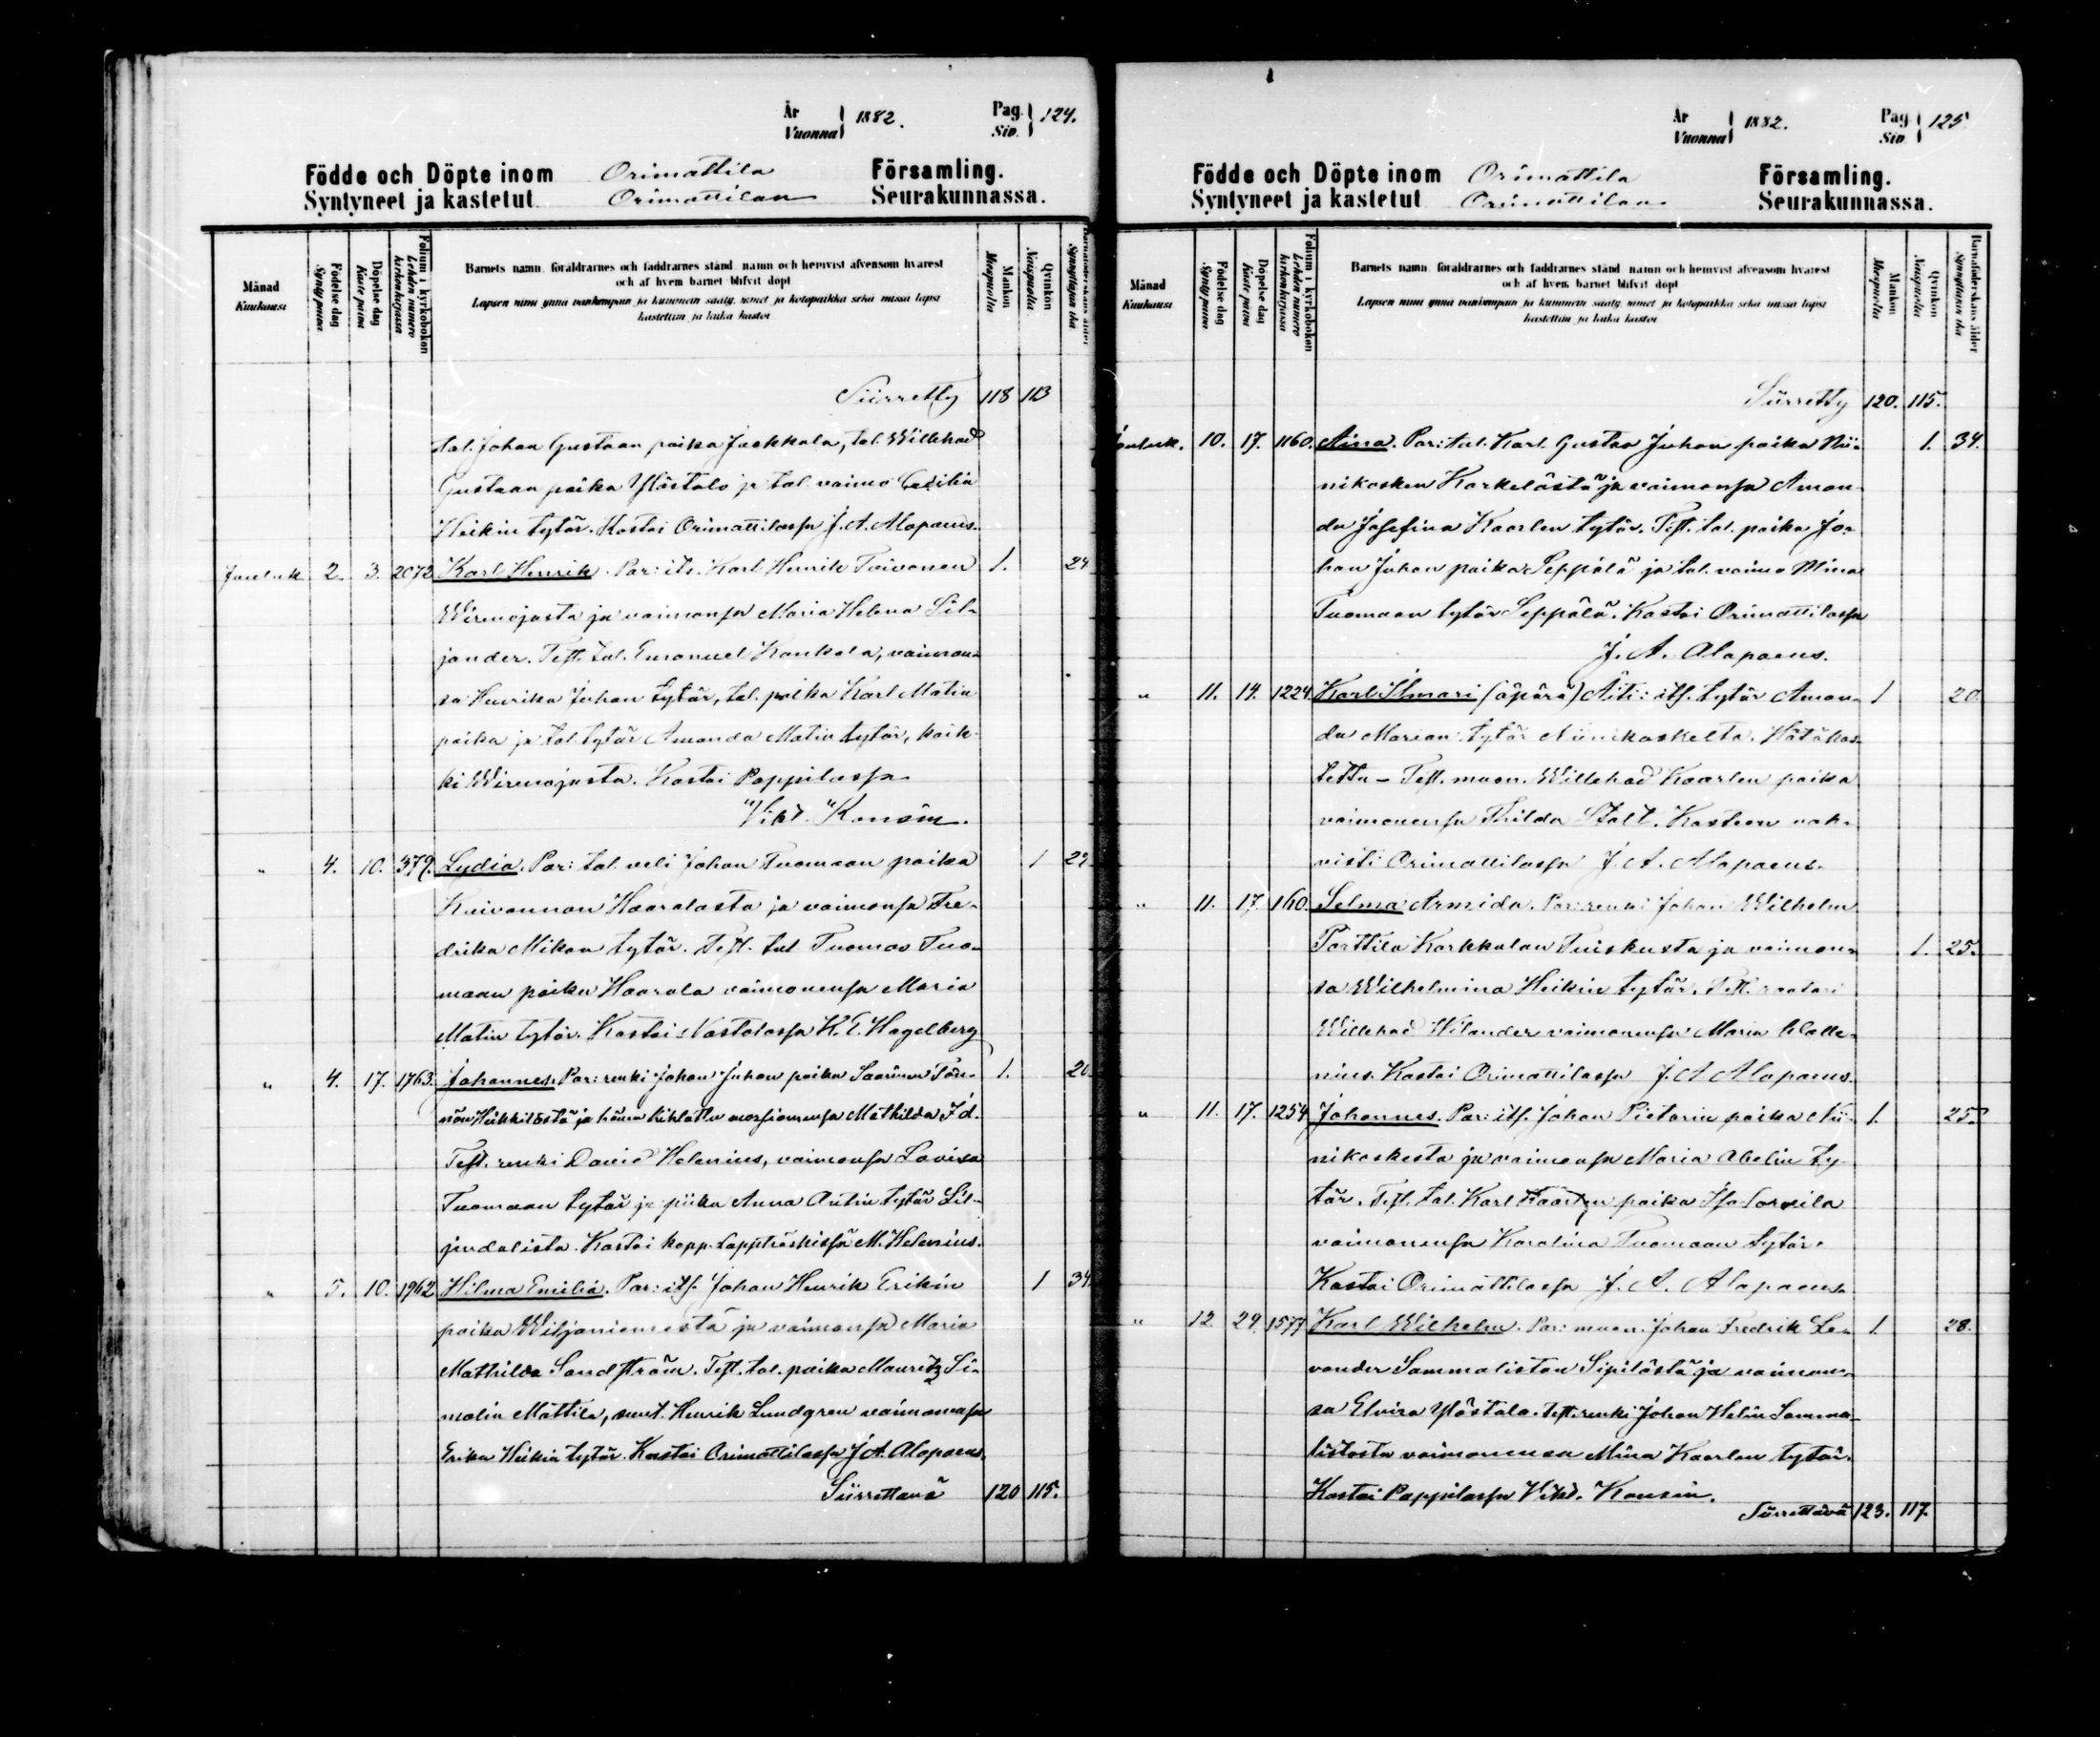 År
Vuonna } 1882.
Pag.
Siv. } 124.
Födde och Döpte inom Orimattila Församling.
Syntyneet ja kastetut Orimattilan Seurakunnassa.
Månad
Kuukausi
Födelse dag
Synty päivä
Döpelse dag
Kaste päivä
Folium i kyrkoboken
Lehden numero kirkonkirjassa
Barnets namn, föräldrarnes och faddrarnes stånd, namn och hemvist äfvensom hvarest
och af hvem barnet blifvit döpt
Lapsen nimi ynnä vanhempain ja kummein sääty, nimet ja kotopaikka sekä missä lapsi
kastettiin ja kuka kastoi
Mankön
Miespuolia
Qvinkön
Naispuolia
Barnaföderskans ålder
Synnyttäjän ikä
Siirretty 118 113
tal. Johan Gustaan poika Jaakkola, tal. Willehad
Gustaan poika Ylöstalo ja tal. vaimo Cecilia
Heikin tytär. Kastoi Orimattilassa J. A. Alopaeus.
Jouluk. 2. 3. 2072 Karl Henrik. Par: its. Karl Henrik Toivonen 1. 24
Wirenojasta ja vaimonsa Maria Helena Sil-
jander. Test. tal. Emanuel Kankola, vaimon-
sa Henrika Juhan tytär, tal. poika Karl Matin
poika ja tal. tytär Amanda Matin tytär, kaik-
ki Wirenojasta. Kastoi Pappilassa
Vikt. Konsin.
" 4. 10. 379. Lydia. Par: tal. veli Johan Tuomaan poika 1 29
Kuivannon Haaralasta ja vaimonsa Fre-
drika Mikon tytär. Test. tal. Tuomas Tuo-
maan poika Haarala vaimonensa Maria
Matin tytär. Kastoi Nastolassa K. T. Hagelberg
" 4. 17. 1763. Johannes. Par: renki Johan Juhan poika Saarinen Tön- 1. 20
nön Heikkilästä ja hänen kihlattu morsiamensa Mathilda F d.
Test. renki David Helenius, vaimonsa Lovisa
Tuomaan tytär ja piika Anna Antin tytär Lil-
jendalista. Kastoi kapp. Lappträskissä M. Helenius.
" 5. 10. 1962 Hilma Emilia. Par: its. Johan Henrik Erikin 1 34
poika Wiljaniemestä ja vaimonsa Maria
Mathilda Sandström. Test. tal. poika Mauritz Si-
molin Mattila, sunt. Henrik Lundgren vaimonensa
Erika Heikin tytär. Kastoi Orimattilassa J. A. Alopaeus.
Siirrettävä 120 115.
År
Vuonna } 1882.
Pag
Siv } 125
Födde och Döpte inom Orimattila Församling.
Syntyneet ja kastetut Orimattilan Seurakunnassa.
Månad
Kuukausi
Födelse dag
Synty päivä
Döpelse dag
Kaste päivä
Folium i kyrkoboken
Lehden numero kirkonkirjassa
Barnets namn, föräldrarnes och faddrarnes stånd, namn och hemvist äfvensom hvarest
och af hvem barnet blifvit döpt
Lapsen nimi ynnä vanhempain ja kummein sääty, nimet ja kotopaikka sekä missä lapsi
kastettiin ja kuka kastoi
Mankön
Miespuolia
Qvinkön
Naispuolia
Barnaföderskans ålder
Synnyttäjän ikä
Siirretty 120. 115.
Jouluk. 10. 17. 1160. Aina. Par: tal. Karl Gustav Juhan poika Nii- 1. 34.
nikosken Korkelästä ja vaimonsa Aman-
da Josefina Kaarlen tytär. Test. tal. poika Jo-
han Juhan poika Seppälä ja tal. vaimo Mina
Tuomaan tytär Seppälä. Kastoi Orimattilassa
J. A. Alopaeus.
" 11. 14. 1224. Karl Ilmari (äpärä) Äiti: its. tytär Aman- 1 20.
da Marian tytär Niinikoskelta. Hätäkas-
tettu – Test. muon. Willehad Kaarlen poika
vaimonensa Thilda Stolt. Kasteen vah-
visti Orimattilassa J. A. Alopaeus.
" 11. 17. 160. Selma Armida. Par: renki Johan Wilhelm
Porttila Karkkulan Tuiskusta ja vaimon- 1. 25.
sa Wilhelmina Heikin tytär. Test. raatari
Willehad Wilander vaimonensa Maria Walle-
nius. Kastoi Orimattilassa J. A. Alopaeus.
" 11. 17. 1254 Johannes. Par: its. Johan Pietarin poika Nii- 1. 25.
nikoskesta ja vaimonsa Maria Abelin ty-
tär. Test. tal. Karl Kaarlen poika Iso Sorvila
vaimonensa Karolina Tuomaan tytär.
Kastoi Orimattilassa J. A. Alopaeus.
" 12. 29. 1577 Karl Wilhelm. Par: muon. Johan Fredrik Le- 1. 28.
vander Sammaliston Sipilästä ja vaimon-
sa Elvira Ylöstalo. Test. renki Johan Helin Samma-
listosta vaimonensa Mina Kaarlen tytär.
Kastoi Pappilassa Vikt. Konsin.
Siirrettävä 123. 117.